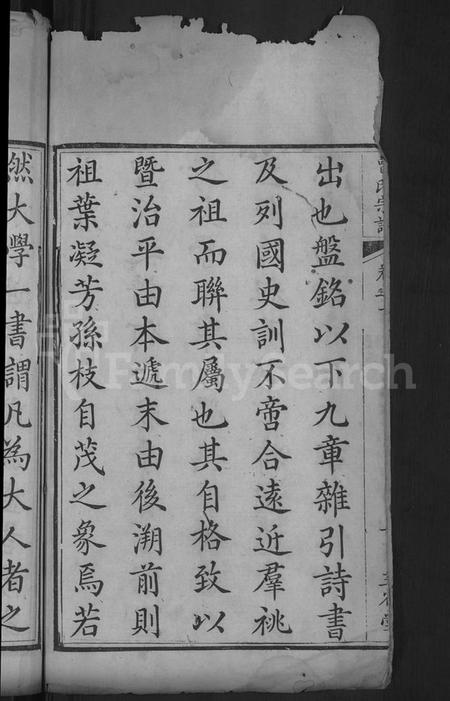 出也盤銘以下九章雜引詩書
及列國史訓不啻合遠近羣祧
之祖而聯其屬也其自格致以
暨治平由本遞末由後溯前則
祖葉凝芳孫枝自茂之象焉若
然大學一書謂凡為大人者之
氏宗譜
卷之
FamilySearch